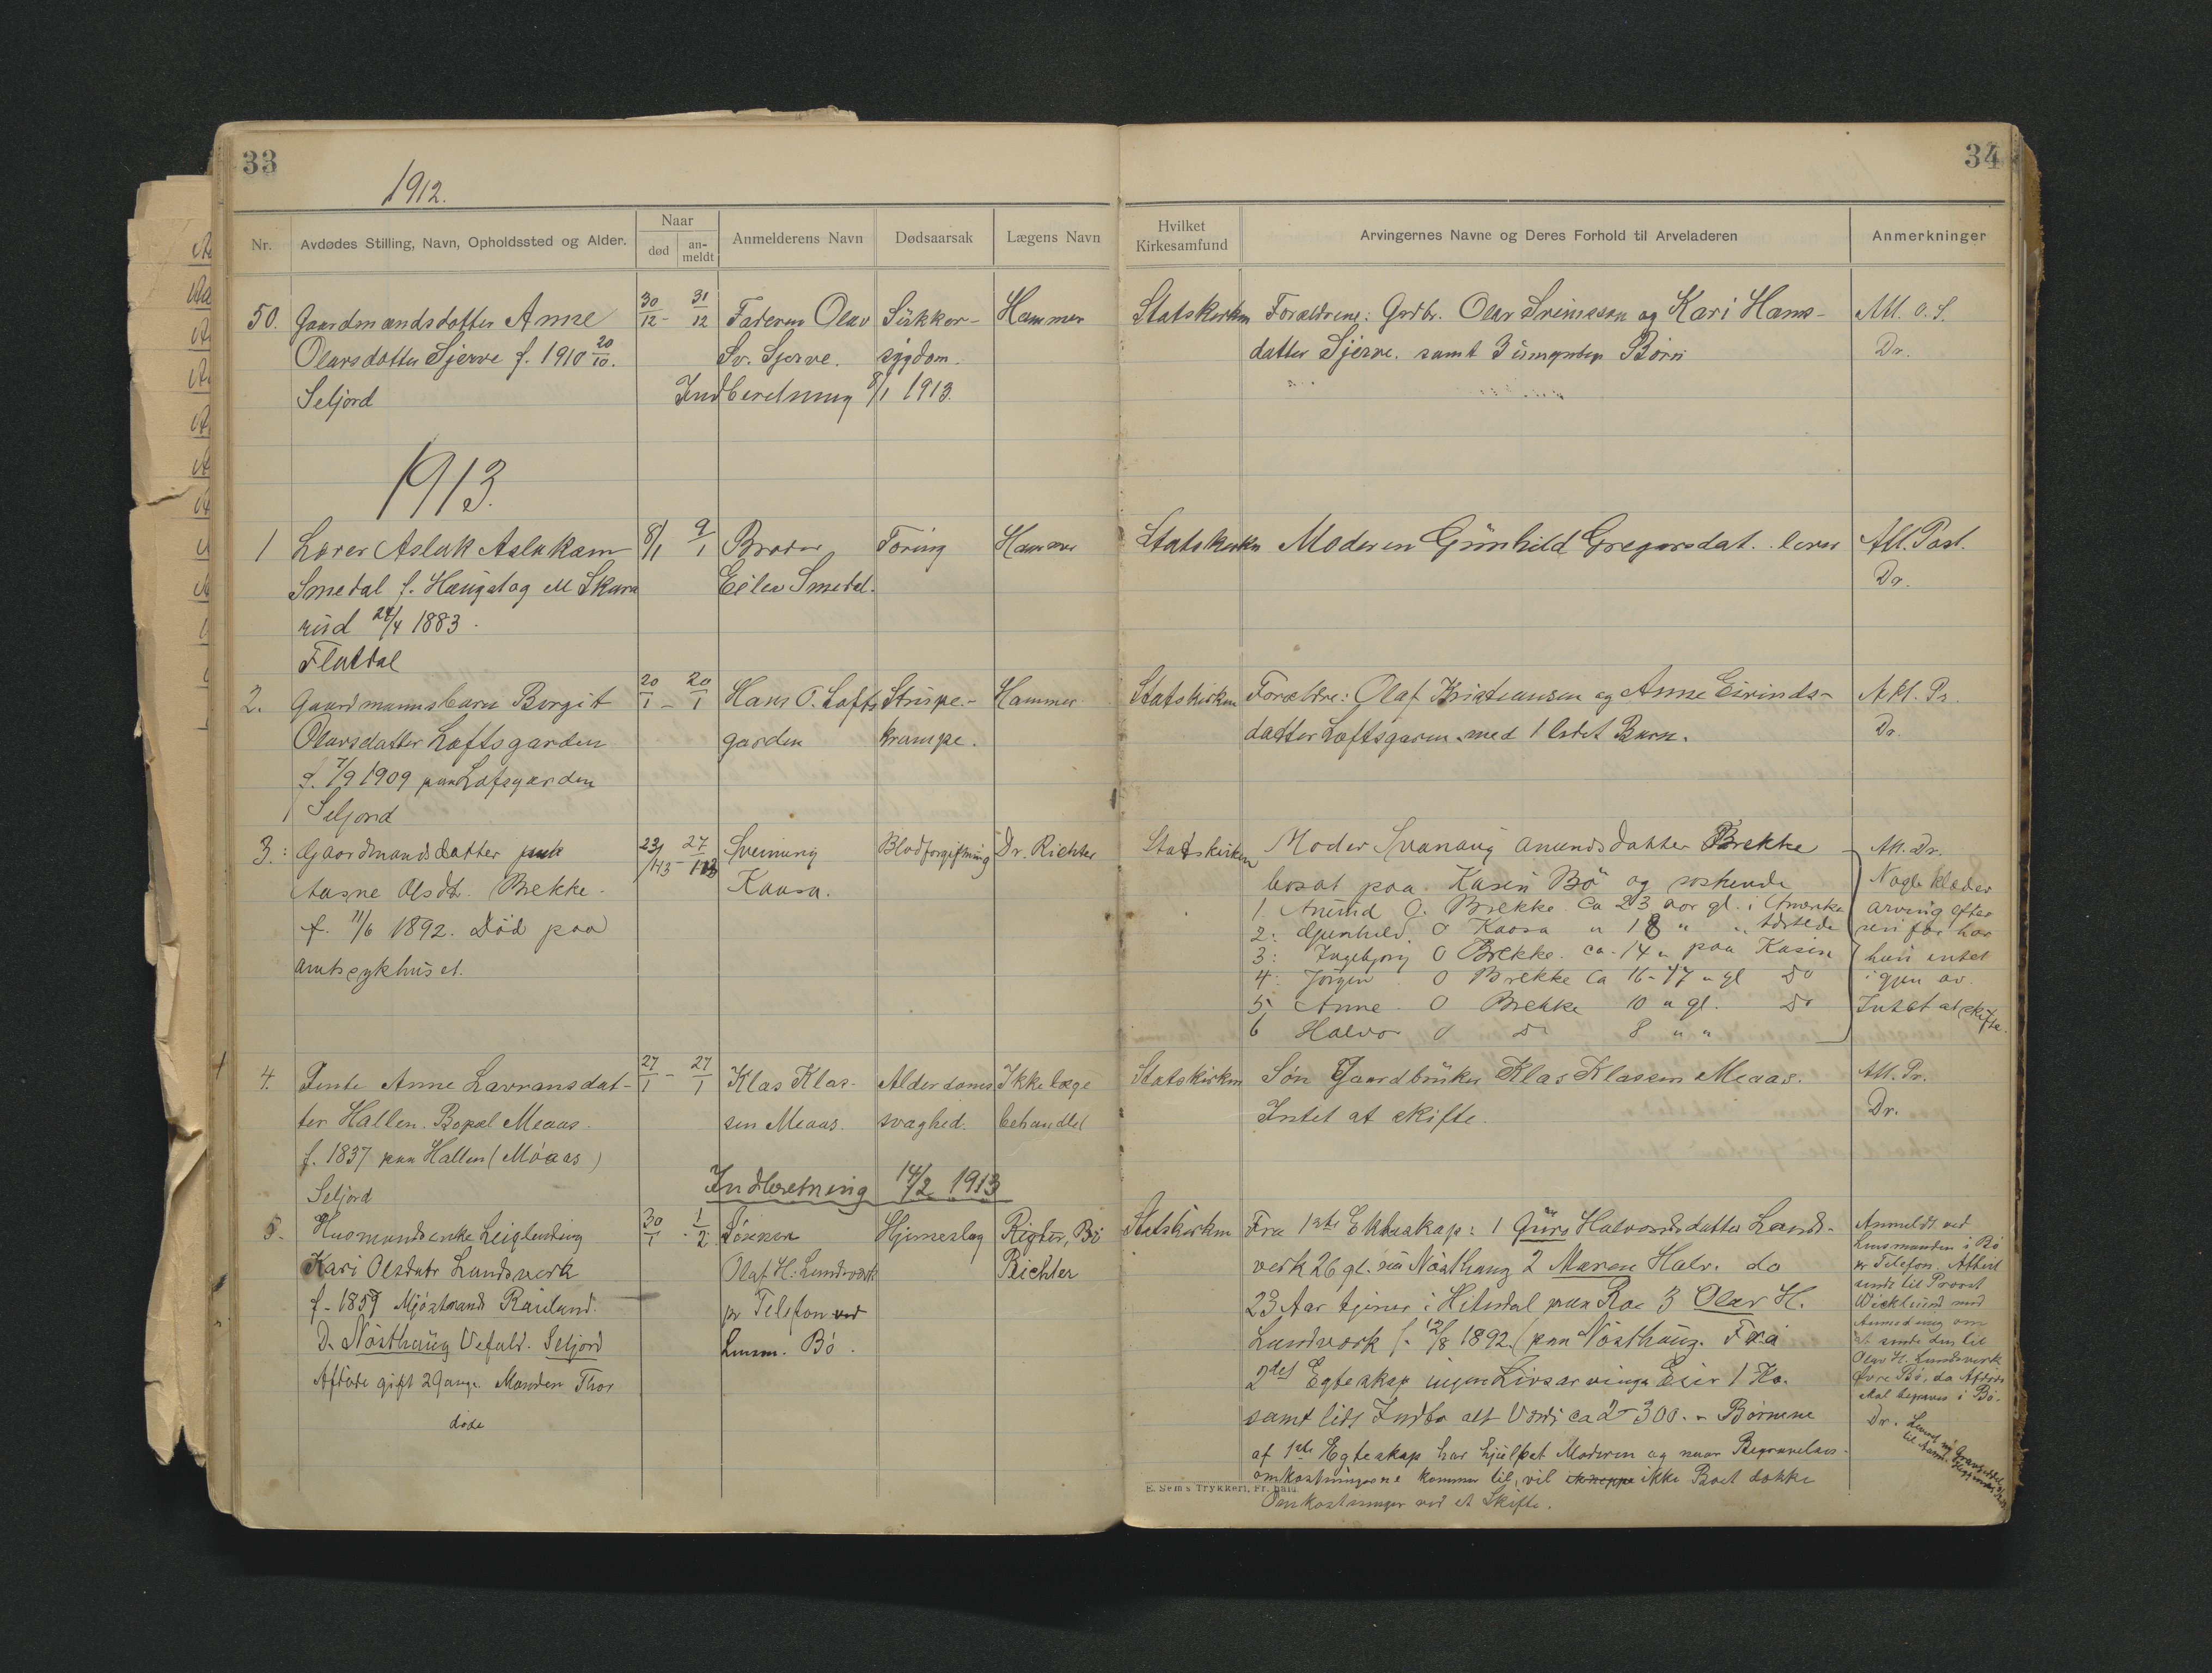 33
34
1912.
Nr.
Avdødes Stilling, Navn, Opholdssted og Alder.
Naar
død
an-
meldt
Anmelderens Navn
Dødsaarsak
Lægens Navn
Hvilket
Kirkesamfund
Arvingernes Navne og Deres Forhold til Arveladeren
Anmerkninger
50. Gaardmandsdatter Anne
Olavsdatter Sjerve f. 1910 20/10.
Seljord
30/12 - 31/12
Faderen Olav
Sv. Sjerve.
Sükker-
sygdom.
Hammer
Indberetning 8/1 1913.
Statskirken
Forældrene: Grdbr. Olav Sveinsson og Kari Hans-
datter Sjerve. samt 3 Börn
Att. O. S.
Dr.
1913.
1 Lærer Aslak Aslaksen
Smedal f. Haugstog
rud 24/4 1883.
Flatdal
8/1 9/1
Broder
Eilev Smedal.
Tæring
Hammer
Statskirken
Moderen Gunhild Gregarsdat. lever
Att. Post.
Dr.
2. Gaardmannsbarn Borgit
Olavsdatter Loftsgarden
f. 7/9 1909 paa Loftsgarden
Seljord
20/1 - 20/1
Hans O. Lofts
garden
Strupe-
krampe.
Hammer
Statskirken
Forældre: Olaf Kristiansen og Anne Eivinds-
datter Loftsgaren. med 1 Barn.
Att. Pr.
Dr.
3.: Gaardmandsdatter
Aasne Olsdt. Brekke.
f. 11/6 1892. Död paa
amtssykhuset.
23/1 13 - 27/1 13
Sveinung
Kaasa.
Blodforgiftning
Dr. Richter
Statskirken
Moder Svanaug Anundsdatter Brekke
bosat paa Kasin Bö og söskende
1. Anund O. Brekke Ca 23 aar gl. i Amerika
2: Gunhild. O Kaasa " 18 " "
3: Ingebjorg O Brekke. ca. 14 " paa Kasin
4: Jörgen O Brekke Ca 16-17 " gl do
5; Anne O Brekke 10 " gl. do
6 Halvor O do 8 " "
Att. Dr.
Nogle klæder
arving efter
far har
hun intet
igjen av.
Intet at skifte.
4. Jente Anne Lavransdat-
ter Hallen. Bopæl Meaas.
f. 1837 paa Hallen (Möaas)
Seljord
27/1 - 27/1
Klas Klas-
sen Meaas.
Alderdoms
svaghed.
Ikke læge
behandlet
Indberetning 14/2 1913
Statskirken
Sön Gaardbruker Klas Klasen Meaas.
Intet at skifte.
Att. Pr.
Dr.
5. Husmandsenke Leiglending
Kari Olsdatr Landsverk
f. 1859 Rauland.
D. Nösthaug Seljord
Afdöde gift 2 Gange. Manden Thor
døde
30/1 - 1/2
Sönnen
Olaf H. Lundsverk
pr Telefon ved
Lensm. Bö.
Hjerneslag
Rigter, Bö
Richter
Statskirken
Fra 1ste Ekteskap: 1 Guro Halvorsdatter Lands-
verk 26 gl. Nösthaug 2 Maren Halv. do
23 Aar tjener i Hitterdal paa 3 Olav H.
Lundsverk f. 12/8 1892 (paa Nösthaug. Fra
2det Egteskap ingen Livsarvinger Eier 1 Ko.
samt lidt Indbo alt Værdi ca 2-300.- Börnene
af 1ste Egteskap har hjulpet Moderen og naar Begravelses-
omkostningerne kommer til, vil ikke Boet dække
Omkostninger ved et Skifte.
Anmeldt ved
Lensmanden i Bö
pr Telefon. Attest
sendt til Provst
med
Anmodning om
at sende den til
Olav H. Lundsverk
Øvre Bö, da Afdöde
skal begraves i Bö.
Dr.
E. Sem's Trykkeri, Fr.hald.